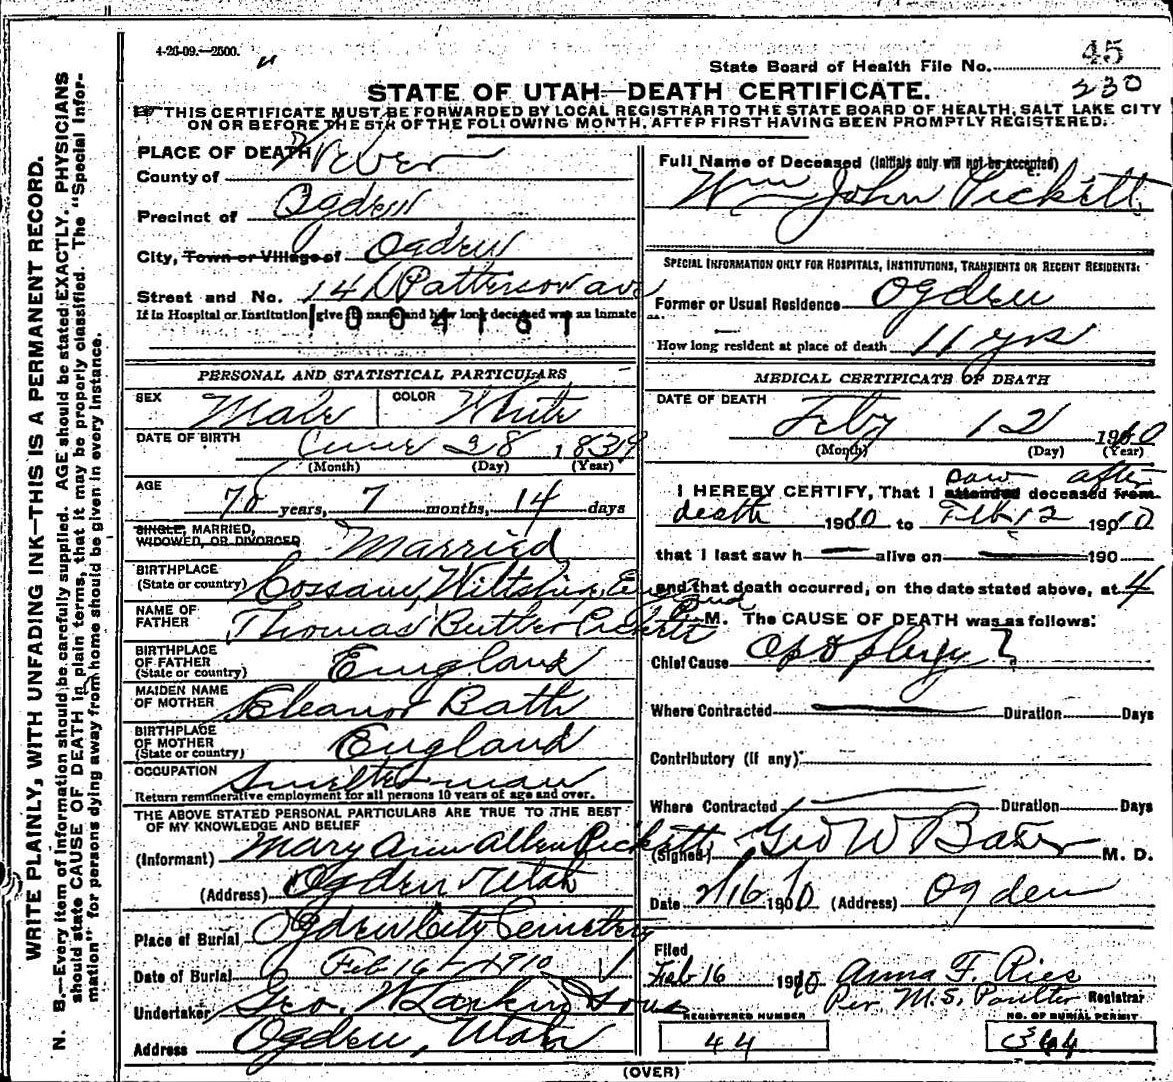 4-26-09.—2500.
45
State Board of Health File No.
230
STATE OF UTAH—DEATH CERTIFICATE.
THIS CERTIFICATE MUST BE FORWARDED BY LOCAL REGISTRAR TO THE STATE BOARD OF HEALTH, SALT LAKE CITY
ON OR BEFORE THE 5TH OF THE FOLLOWING MONTH, AFTER FIRST HAVING BEEN PROMPTLY REGISTERED.
WRITE PLAINLY, WITH UNFADING INK—THIS IS A PERMANENT RECORD.
N. B.—Every item of information should be carefully supplied. AGE should be stated EXACTLY. PHYSICIANS
should state CAUSE OF DEATH in plain terms, that it may be properly classified. The "Special Infor-
mation" for persons dying away from home should be given in every instance.
PLACE OF DEATH
County of Weber
Precinct of Ogden
City, Town or Village of Ogden
Street and No. 141 Patterson ave
If in Hospital or Institution, give its name and how long deceased was an inmate
1004161
PERSONAL AND STATISTICAL PARTICULARS
SEX Male COLOR White
DATE OF BIRTH June 28 1839
(Month) (Day) (Year)
AGE
70 years, 7 months, 14 days
SINGLE, MARRIED,
WIDOWED, OR DIVORCED Married
BIRTHPLACE
(State or country) Cossam, Wiltshire, England
NAME OF
FATHER Thomas Butler Pickett
BIRTHPLACE
OF FATHER
(State or country) England
MAIDEN NAME
OF MOTHER Eleanor Bath
BIRTHPLACE
OF MOTHER
(State or country) England
OCCUPATION Smelterman
Return remunerative employment for all persons 10 years of age and over.
THE ABOVE STATED PERSONAL PARTICULARS ARE TRUE TO THE BEST
OF MY KNOWLEDGE AND BELIEF
(Informant) Mary Ann Allen Pickett
(Address) Ogden Utah
Place of Burial Ogden City Cemetery
Date of Burial Feb 16 - 1910
Undertaker Geo. W Larkin & Sons
Address Ogden, Utah
Full Name of Deceased (Initials only will not be accepted)
Wm John Pickett
SPECIAL INFORMATION ONLY FOR HOSPITALS, INSTITUTIONS, TRANSIENTS OR RECENT RESIDENTS:
Former or Usual Residence Ogden
How long resident at place of death 11 yrs
MEDICAL CERTIFICATE OF DEATH
DATE OF DEATH
Feby 12 1910
(Month) (Day) (Year)
saw after
I HEREBY CERTIFY, That I attended deceased from
death 1910 to Feb 12 1910
that I last saw h alive on 190
and that death occurred, on the date stated above, at 4
M. The CAUSE OF DEATH was as follows:
Chief Cause Apoplexy ?
Where Contracted Duration Days
Contributory (if any)
Where Contracted Duration Days
(Signed) Geo W Baker M. D.
Date 2/16 1910 (Address) Ogden
Filed
Feb 16 1910 Anna F. Ries
Per. M. S. Poulter Registrar
REGISTERED NUMBER
44
NO. OF BURIAL PERMIT
(OVER)